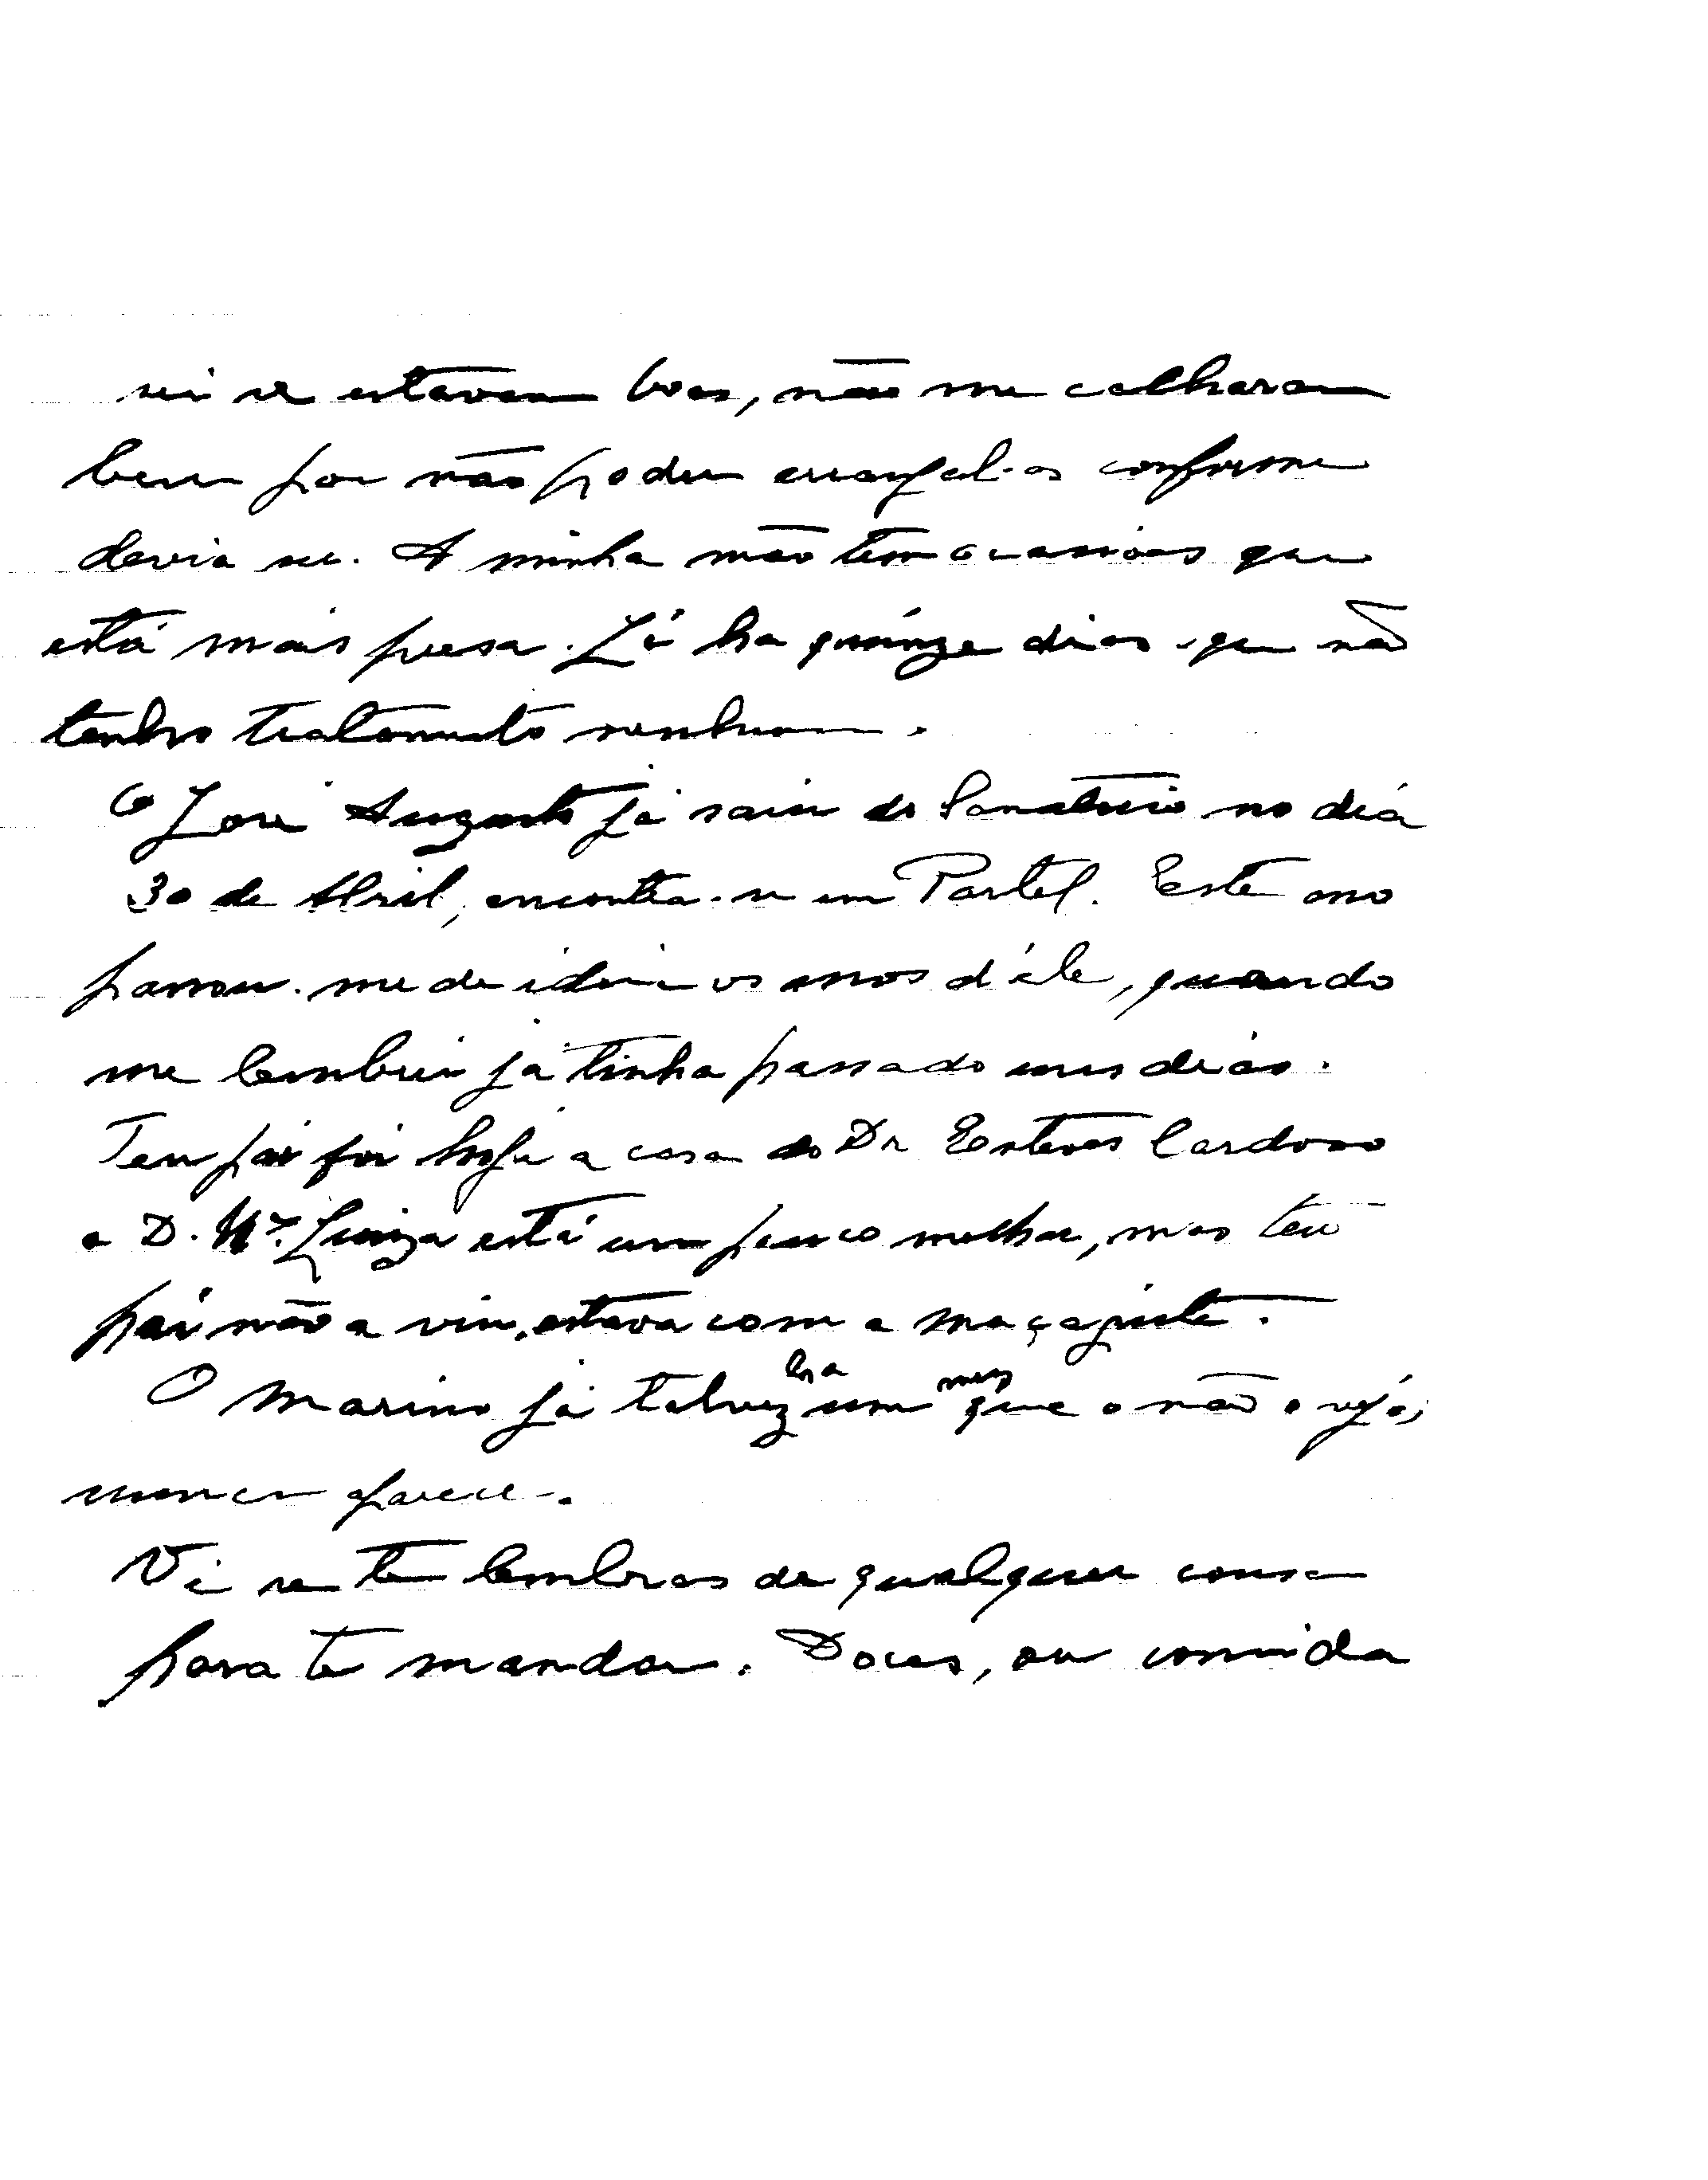 sei se estavam boas, não me calharam
bem por não poder arranjal-os conforme
devia ser. A minha mão tem ocasiões que
está mais presa. Já ha quinze dias que não
tenho tratamento nenhum.
O José Augusto já saiu do Sanatorio no dia
30 de Abril, encontra-se em Portel. Este ano
passou-me de ideia os anos d'ele, quando
me lembrei já tinha passado uns dias.
Teu pai foi hoje a casa do Dr Esteves Cardoso
a D. Mª. Luiza está um pouco melhor, mas teu
pai não a viu, estava com a maçagista.
O Marino já talvez ha um mes que o não o vejo,
nunca aparece.
Vi se te lembras de qualquer cousa
para te mandar. Doces, ou comida